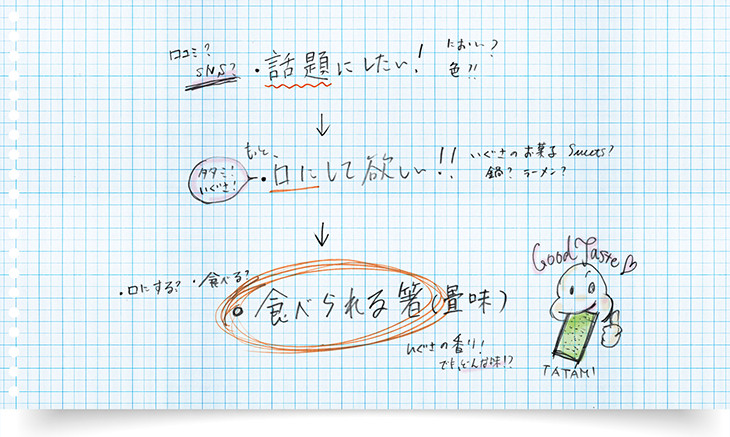 口コミ?
SNS?
・話題にしたい!
におい?
色?!
もっと、
タタミ!
いぐさ!
・口にして欲しい!!
いぐさのお菓子 Sweets?
鍋? ラーメン?
・口にする? ・食べる?
食べられる箸(畳味)
いぐさの香り!
でも、どんな味!?
Good Taste
TATAMI